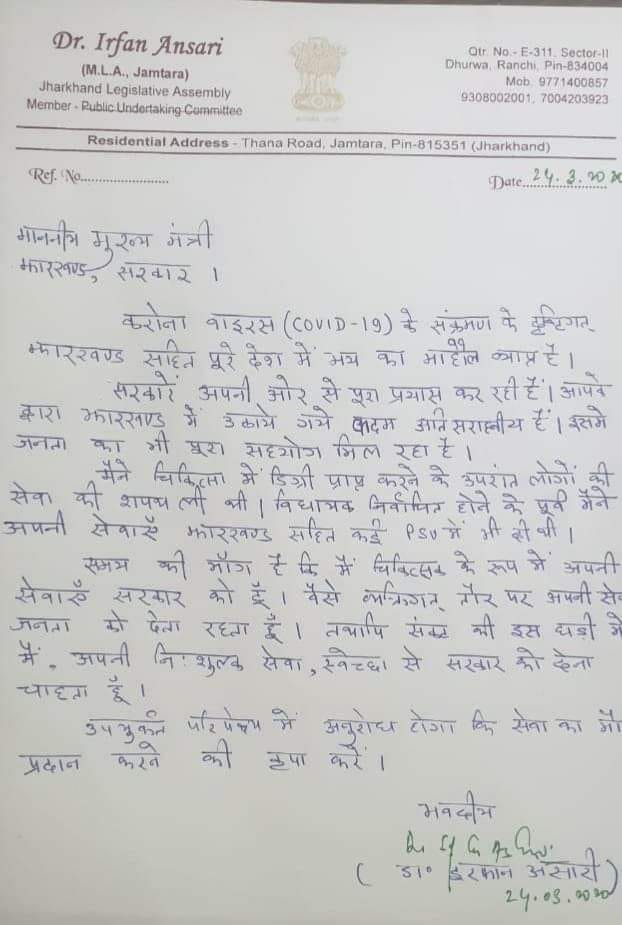 Dr. Irfan Ansari
(M.L.A., Jamtara)
Jharkhand Legislative Assembly
Member - Public Undertaking Committee
Qtr. No.- E-311, Sector-II
Dhurwa, Ranchi, Pin-834004
Mob. 9771400857
9308002001, 7004203923
Residential Address - Thana Road, Jamtara, Pin-815351 (Jharkhand)
Ref. No.
Date 24.3.2020
माननीय मुख्य मंत्री
झारखण्ड, सरकार ।
करोना वाइरस (COVID-19) के संक्रमण के दृष्टिगत्
झारखण्ड सहित पूरे देश में भय का माहौल व्याप्त है ।
सरकारें अपनी ओर से पूरा प्रयास कर रही हैं । आपके
द्वारा झारखण्ड में उठाये गये कदम अतिसराहनीय हैं । इसमें
जनता का भी पूरा सहयोग मिल रहा है ।
मैंने चिकित्सा में डिग्री प्राप्त करने के उपरांत लोगों की
सेवा की शपथ ली थी । विधायक निर्वाचित होने के पूर्व मैंने
अपनी सेवाएँ झारखण्ड सहित कई PSU में भी दी थी ।
समय की माँग है कि मैं चिकित्सक के रूप में अपनी
सेवाएँ सरकार को दूँ । वैसे व्यक्तिगत् तौर पर अपनी से
जनता को देता रहता हूँ । तथापि संकट की इस घड़ी में
मैं, अपनी निःशुल्क सेवा, स्वेच्छा से सरकार को देना
चाहता हूँ ।
उपर्युक्त परिपेक्ष्य में अनुरोध होगा कि सेवा का मौ
प्रदान करने की कृपा करें ।
भवदीय
( डा० इरफान अंसारी )
24.03.2020